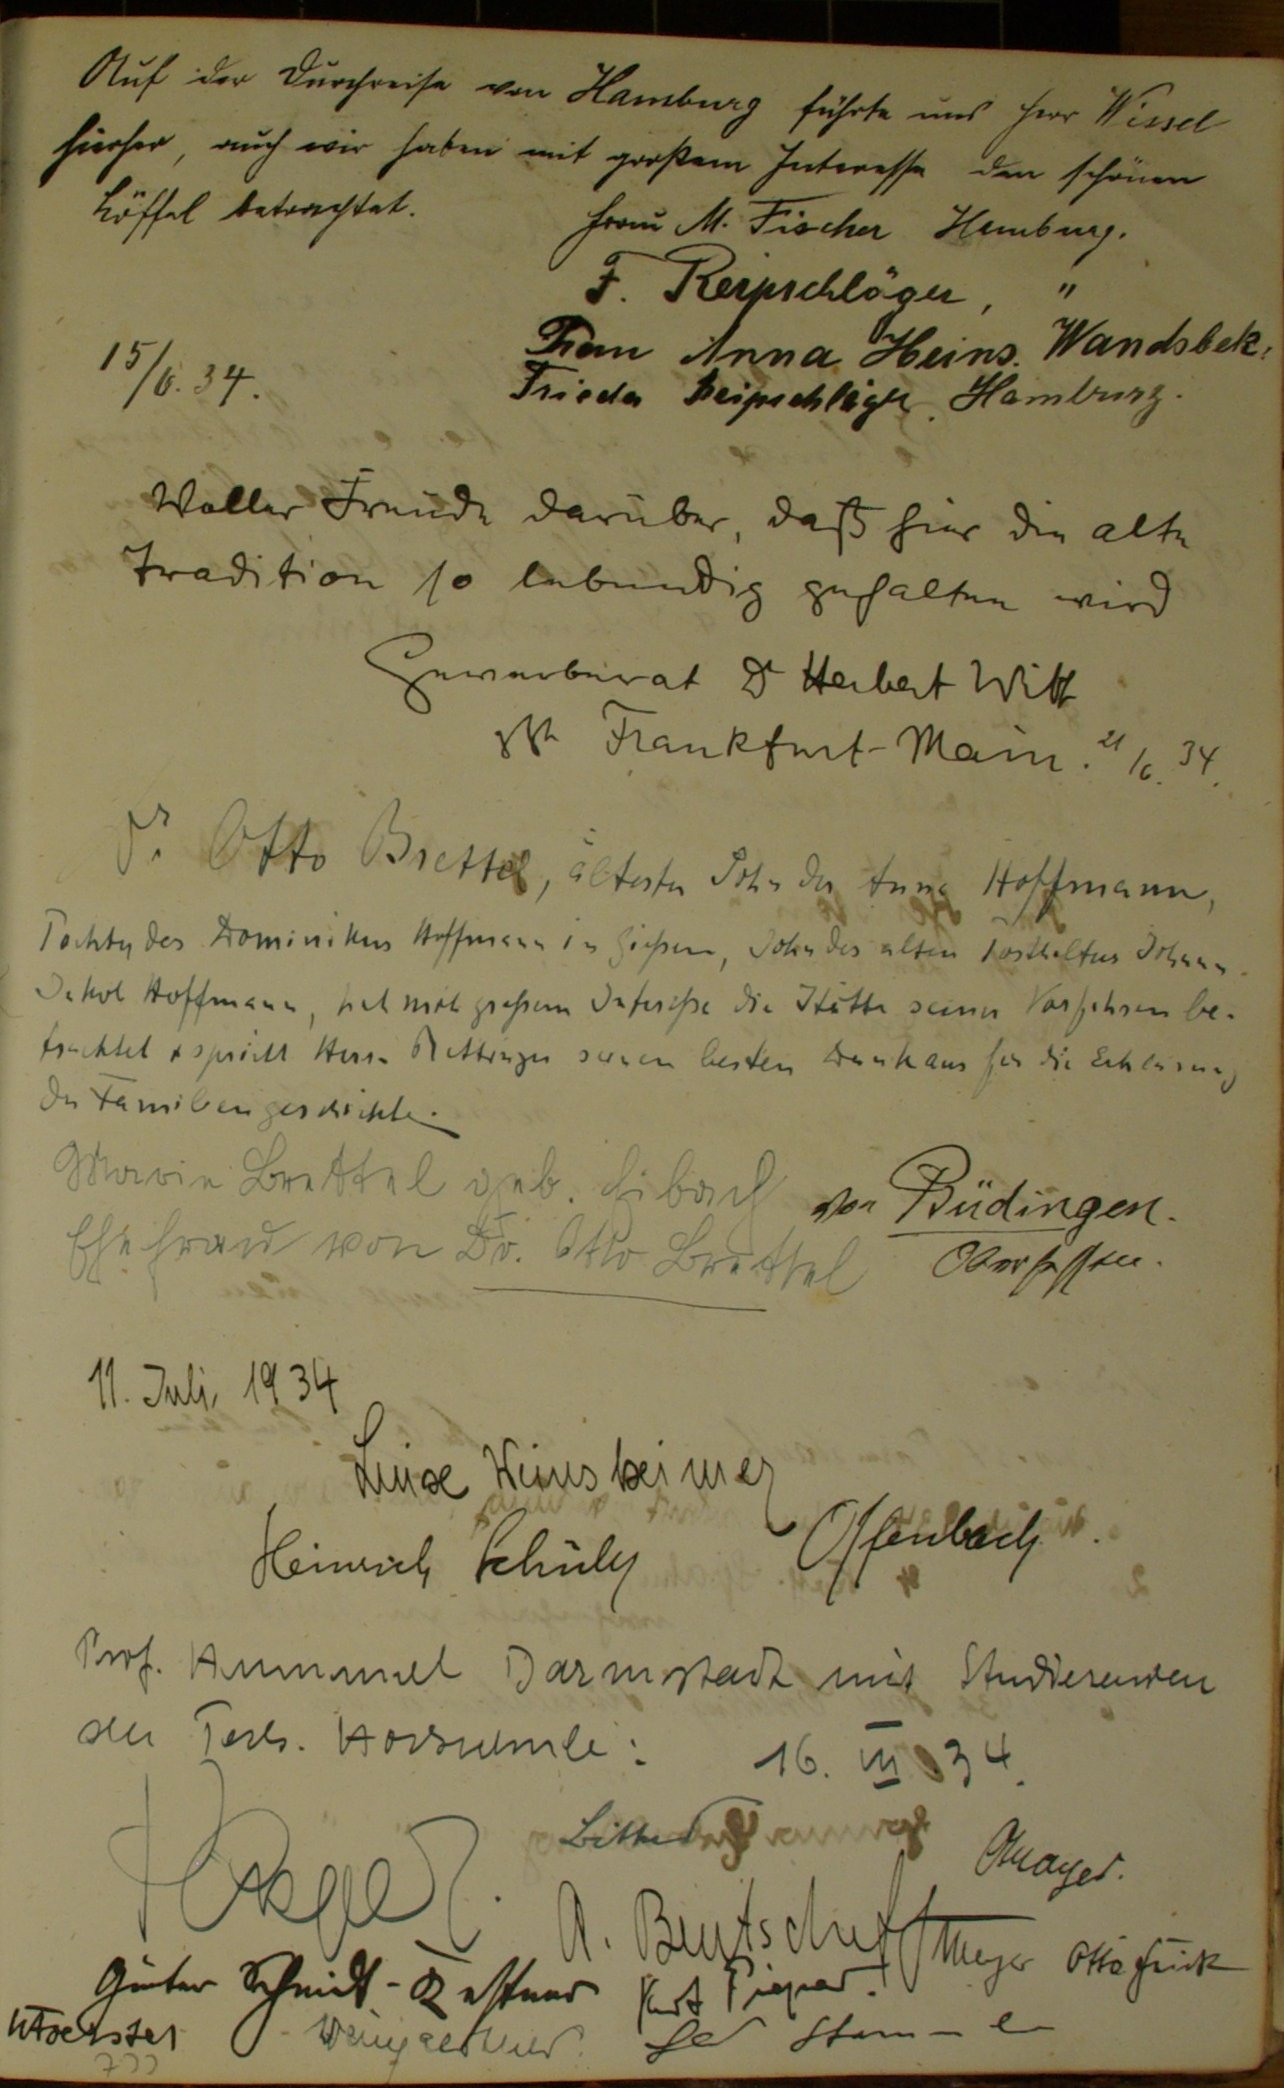 Auf der Durchreise von Hamburg führte uns Herr Wissel
hierher, auch wir haben mit großem Interesse den schönen
Löffel betrachtet.
Frau M. Fischer Hamburg.
F. Reipschläger, "
Frau Anna Heins. Wandsbek.
15/6. 34.
Frieda Reipschläger, Hamburg.
Voller Freude darüber, daß hier die alte
Tradition so lebendig gehalten wird
Gewerberat Dr Herbert Witt
Frankfurt-Main. 21/6. 34.
Dr. Otto Brettel, ältester Sohn der Anna Hoffmann,
Tochter des Dominikus Hoffmann in Gießen, Sohn des alten Posthalters Johann
Jakob Hoffmann, hat mit großem Interesse die Stätte seiner Vorfahren be-
trachtet & spricht Herrn Rettinger seinen besten Dank aus für die Erklärung
der Familiengeschichte.
Marie Brettel geb. Eibach von Büdingen.
Ehefrau von Dr. Otto Brettel Oberhessen.
11. Juli 1934
Luise Weinsheimer
Heinrich Schülz Offenbach.
Prof. Hummel Darmstadt mit Studierenden
der Tech. Hochschule: 16. VII 34.
Mayer.
Meyer Otto Fück
Günter Schmidt- Kurt Pieper.